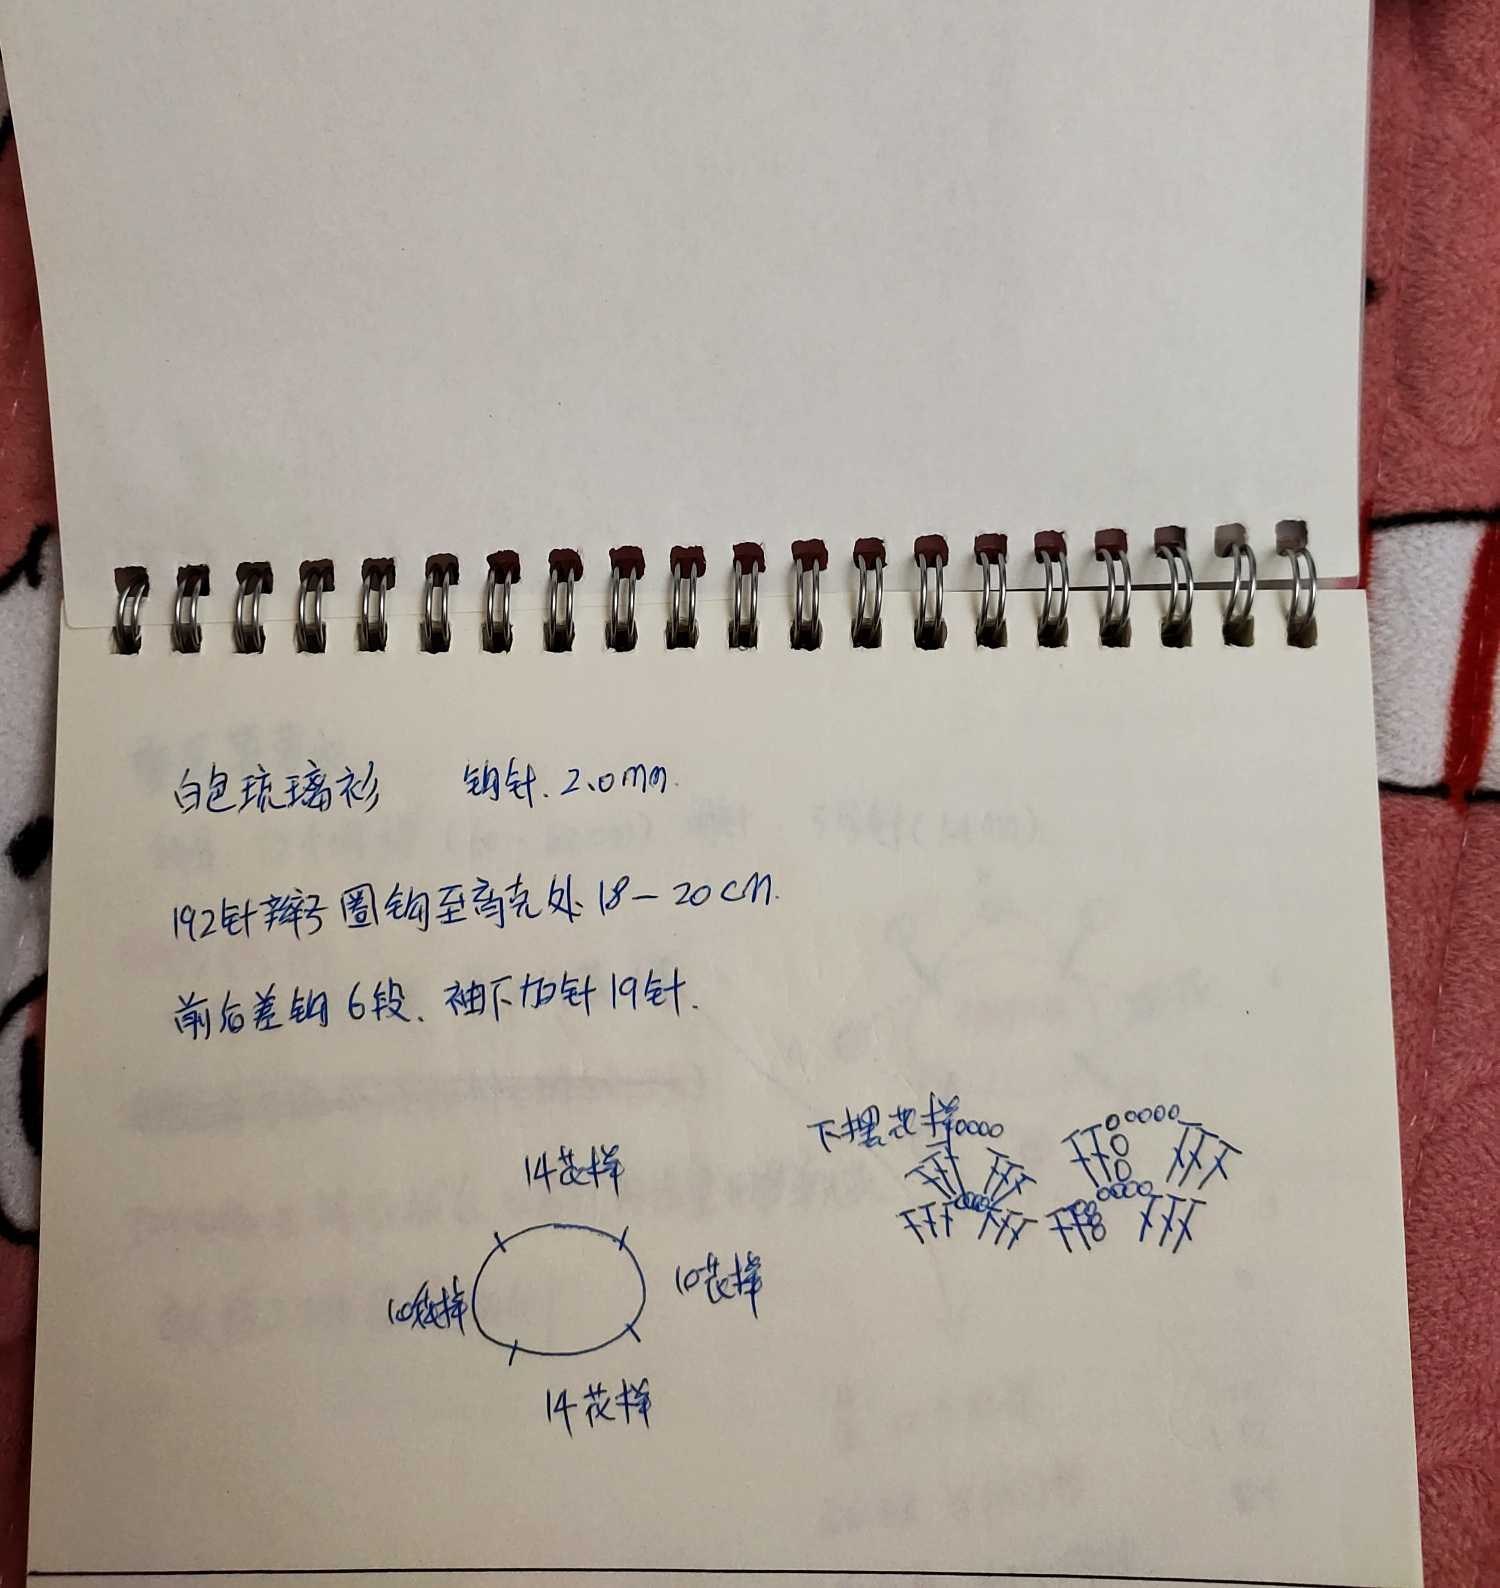 白色琉璃衫 钩针.2.0mm.
192针辫子圈钩至高完处18-20cm.
前后差钩6段.袖下加针19针.
下摆花样
14花样
10花样
10花样
14花样